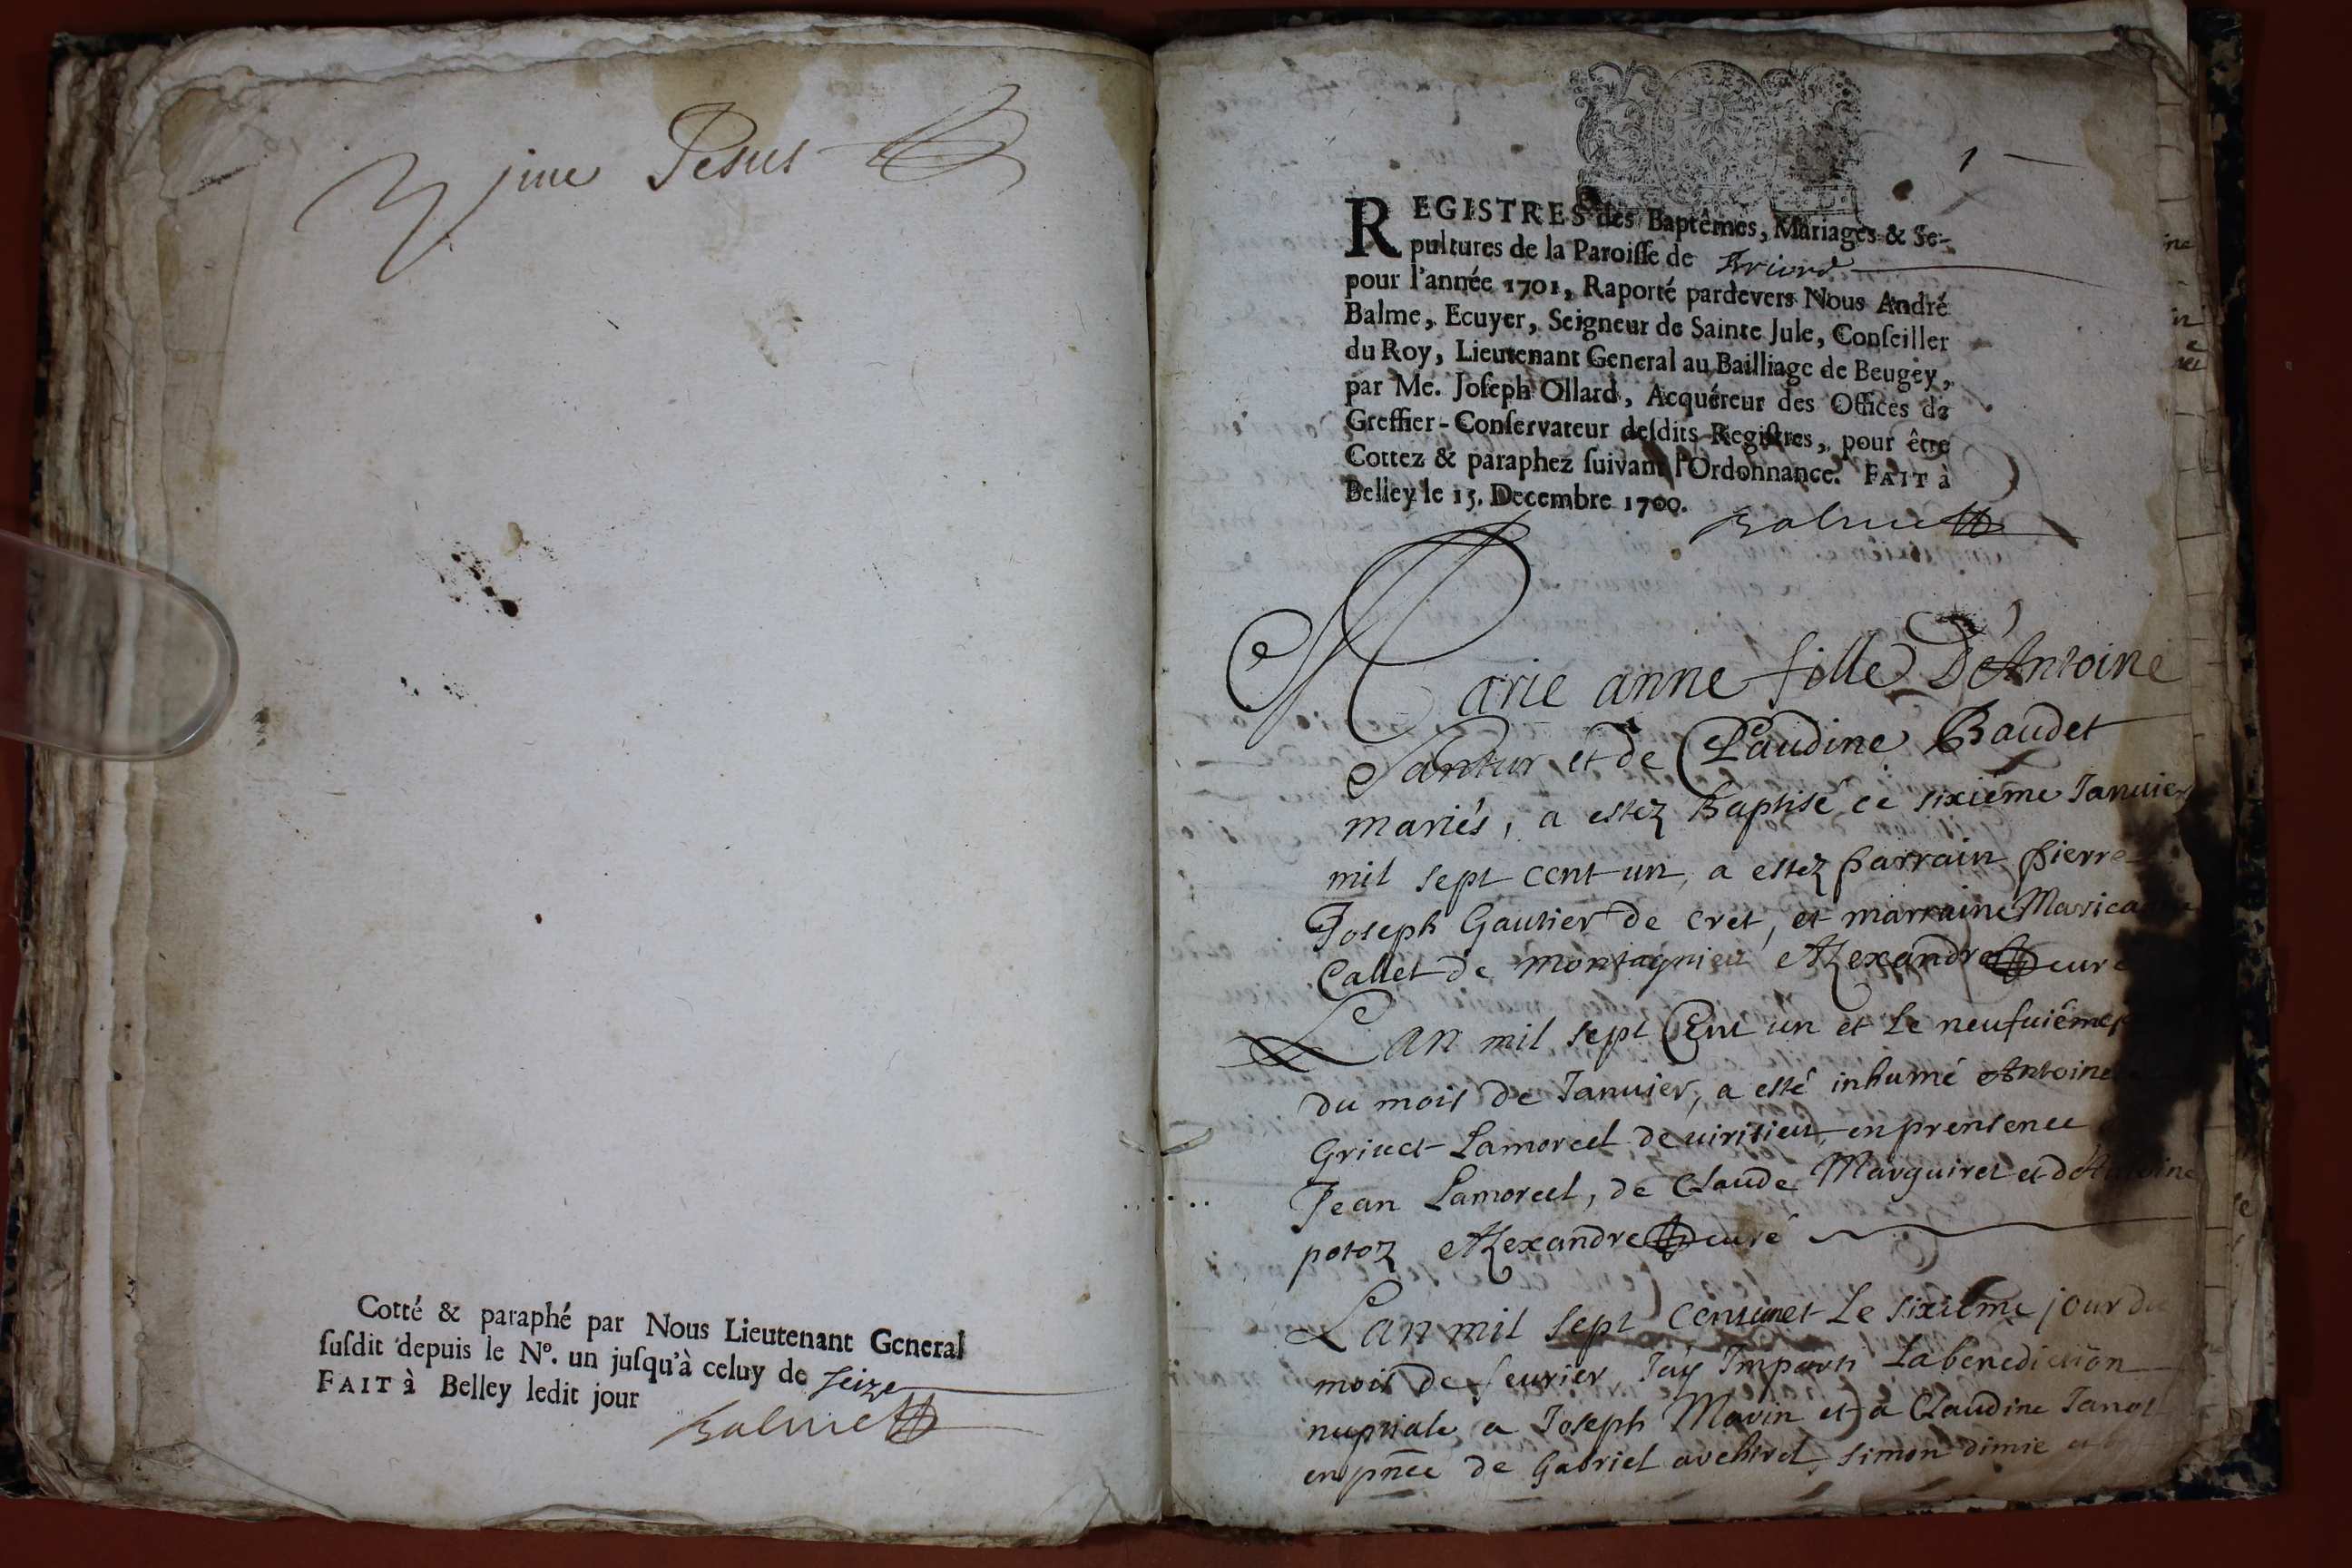 Vive Jesus
Cotté & paraphé par Nous Lieutenant General
ſuſdit depuis le Nº. un juſqu'à celuy de seize
FAIT à Belley ledit jour
Balme
1
REGISTRES des Baptêmes, Mariages & Se-
pultures de la Paroiſſe de
pour l'année 1701, Raporté pardevers Nous André
Balme, Ecuyer, Seigneur de Sainte Jule, Conſeiller
du Roy, Lieutenant General au Bailliage de Beugey,
par Me. Joſeph Ollard, Acquéreur des Offices de
Greffier-Conſervateur deſdits Regiſtres, pour être
Cottez & paraphez ſuivant l'Ordonnance. FAIT à
Belley le 15. Decembre 1700.
Balme
Marie anne fille D'Antoine
et de Claudine Baudet
mariés, a estez Baptisé ce sixiéme Januier
mil sept cent un, a estez parrain pierre
Joseph Gautier de cret, et marraine
Callet de montagnieu Alexandre curé
L'an mil sept Cent un et le neufuiême
du mois de Januier, a esté inhumé Antoine
Griuet Lamorcel de uirisieu, en prensence
Jean Lamorcel, de Claude Marguiret et d'Antoine
potoz Alexandre curé
L'an mil sept cent un et le sixiéme jour du
mois de feurier Jay Imparti la benediction
nuptiale a Joseph Marin et a Claudine Janot
en pñce de Gabriel simon dimie